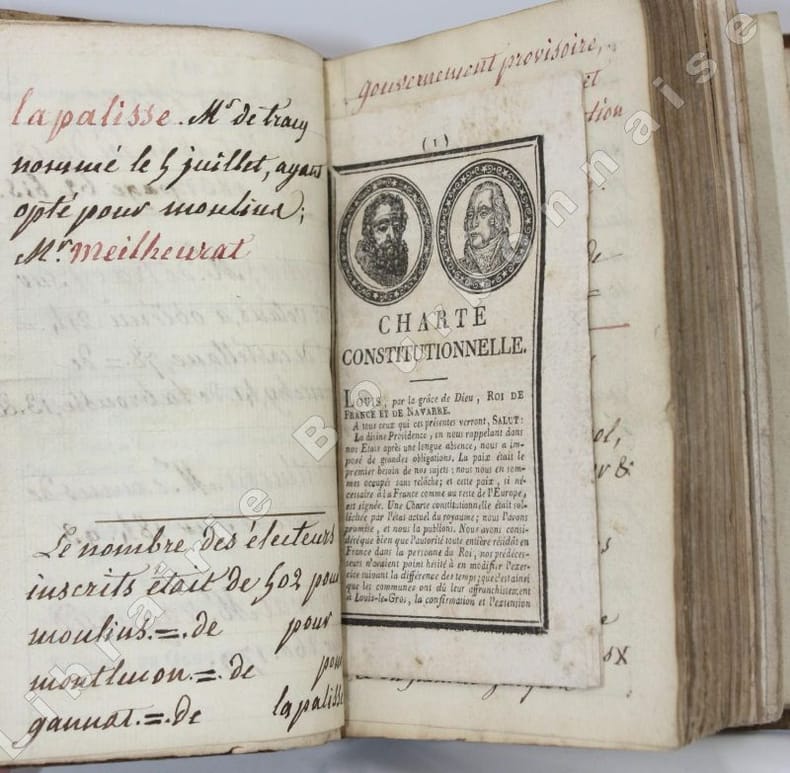 lapalisse. Mr de tracy
nommé le 5 juillet, ayant
opté pour moulins;
Mr Meilheurat
Le nombre des électeurs
inscrits était de 502 pour
moulins. = de pour
montlucon = de pour
gannat. = de lapalisse
gouvernement provisoire,
et
tion
(1)
CHARTE
CONSTITUTIONNELLE.
LOUIS, par la grâce de Dieu, ROI DE
FRANCE ET DE NAVARRE.
A tous ceux qui ces présentes verront, SALUT:
La divine Providence, en nous rappelant dans
nos Etats après une longue absence, nous a im-
posé de grandes obligations. La paix était le
premier besoin de nos sujets; nous nous en som-
mes occupés sans relâche; et cette paix, si né-
cessaire à la France comme au reste de l'Europe,
est signée. Une Charte constitutionnelle était sol-
licitée par l'état actuel du royaume; nous l'avons
promise, et nous la publions. Nous avons consi-
déré que bien que l'autorité toute entière résidât en
France dans la personne du Roi, nos prédéces-
seurs n'avaient point hésité à en modifier l'exer-
cice suivant la différence des temps; que c'est ainsi
que les communes ont dû leur affranchissement
à Louis-le-Gros, la confirmation et l'extension
Librairie Bourbonnaise